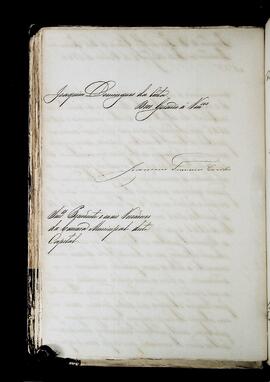 Joaquim Domingues da Costa
Deos Guarde a

Francisco
Presidente e mais Vereadores
da Camara Municipal desta
Capital